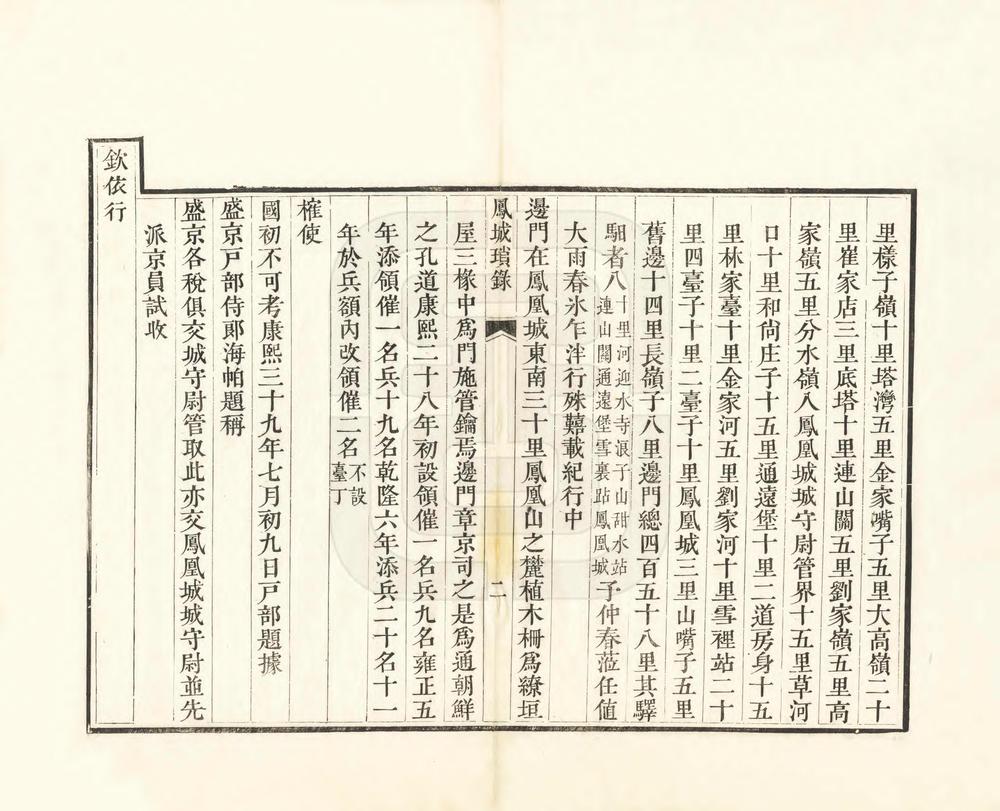 里樣子嶺十里塔灣五里金家嘴子五里大高嶺二十
里崔家店三里底塔十里連山關五里劉家嶺五里高
家嶺五里分水嶺入鳳凰城城守尉管界十五里草河
口十里和尙庄子十五里通遠堡十里二道房身十五
里林家臺十里金家河五里劉家河十里雪裡站二十
里四臺子十里二臺子十里鳳凰城三里山嘴子五里
舊邊十四里長嶺子八里邊門總四百五十八里其驛
馹者八十里河迎水寺浪子山甜水站連山關通遠堡雪裏站鳳凰城予仲春蒞任值
大雨春氷乍泮行殊囏載紀行中
邊門在鳳凰城東南三十里鳳凰山之麓植木柵爲繚垣
鳳城瑣錄
二
屋三椽中爲門施管鑰焉邊門章京司之是爲通朝鮮
之孔道康熙二十八年初設領催一名兵九名雍正五
年添領催一名兵十九名乾隆六年添兵二十名十一
年於兵額內改領催二名不設臺丁
榷使
國初不可考康熙三十九年七月初九日戶部題據
盛京戶部侍郎海帕題稱
盛京各稅俱交城守尉管取此亦交鳳凰城城守尉並先
派京員試收
欽依行